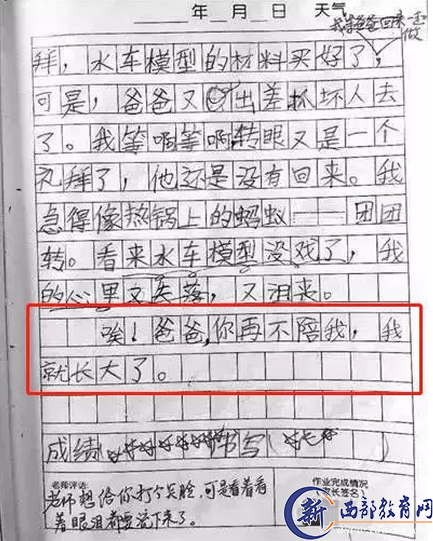 年 月 日 天气
我等爸爸回来一起做
拜，水车模型的材料买好了，
可是，爸爸又出差抓坏人去
了。我等啊等啊，转眼又是一个
礼拜了，他还是没有回来。我
急得像热锅上的蚂蚁——团团
转。看来水车模型没戏了，我
的心里又失落，又沮丧。
唉！爸爸，你再不陪我，我
就长大了。
成绩 好好好好好 书写 好好
老师评语：
作业完成情况
（家长签名）
老师想给你打个笑脸，可是看着看
着眼泪都要流下来了。
新 西部教育网